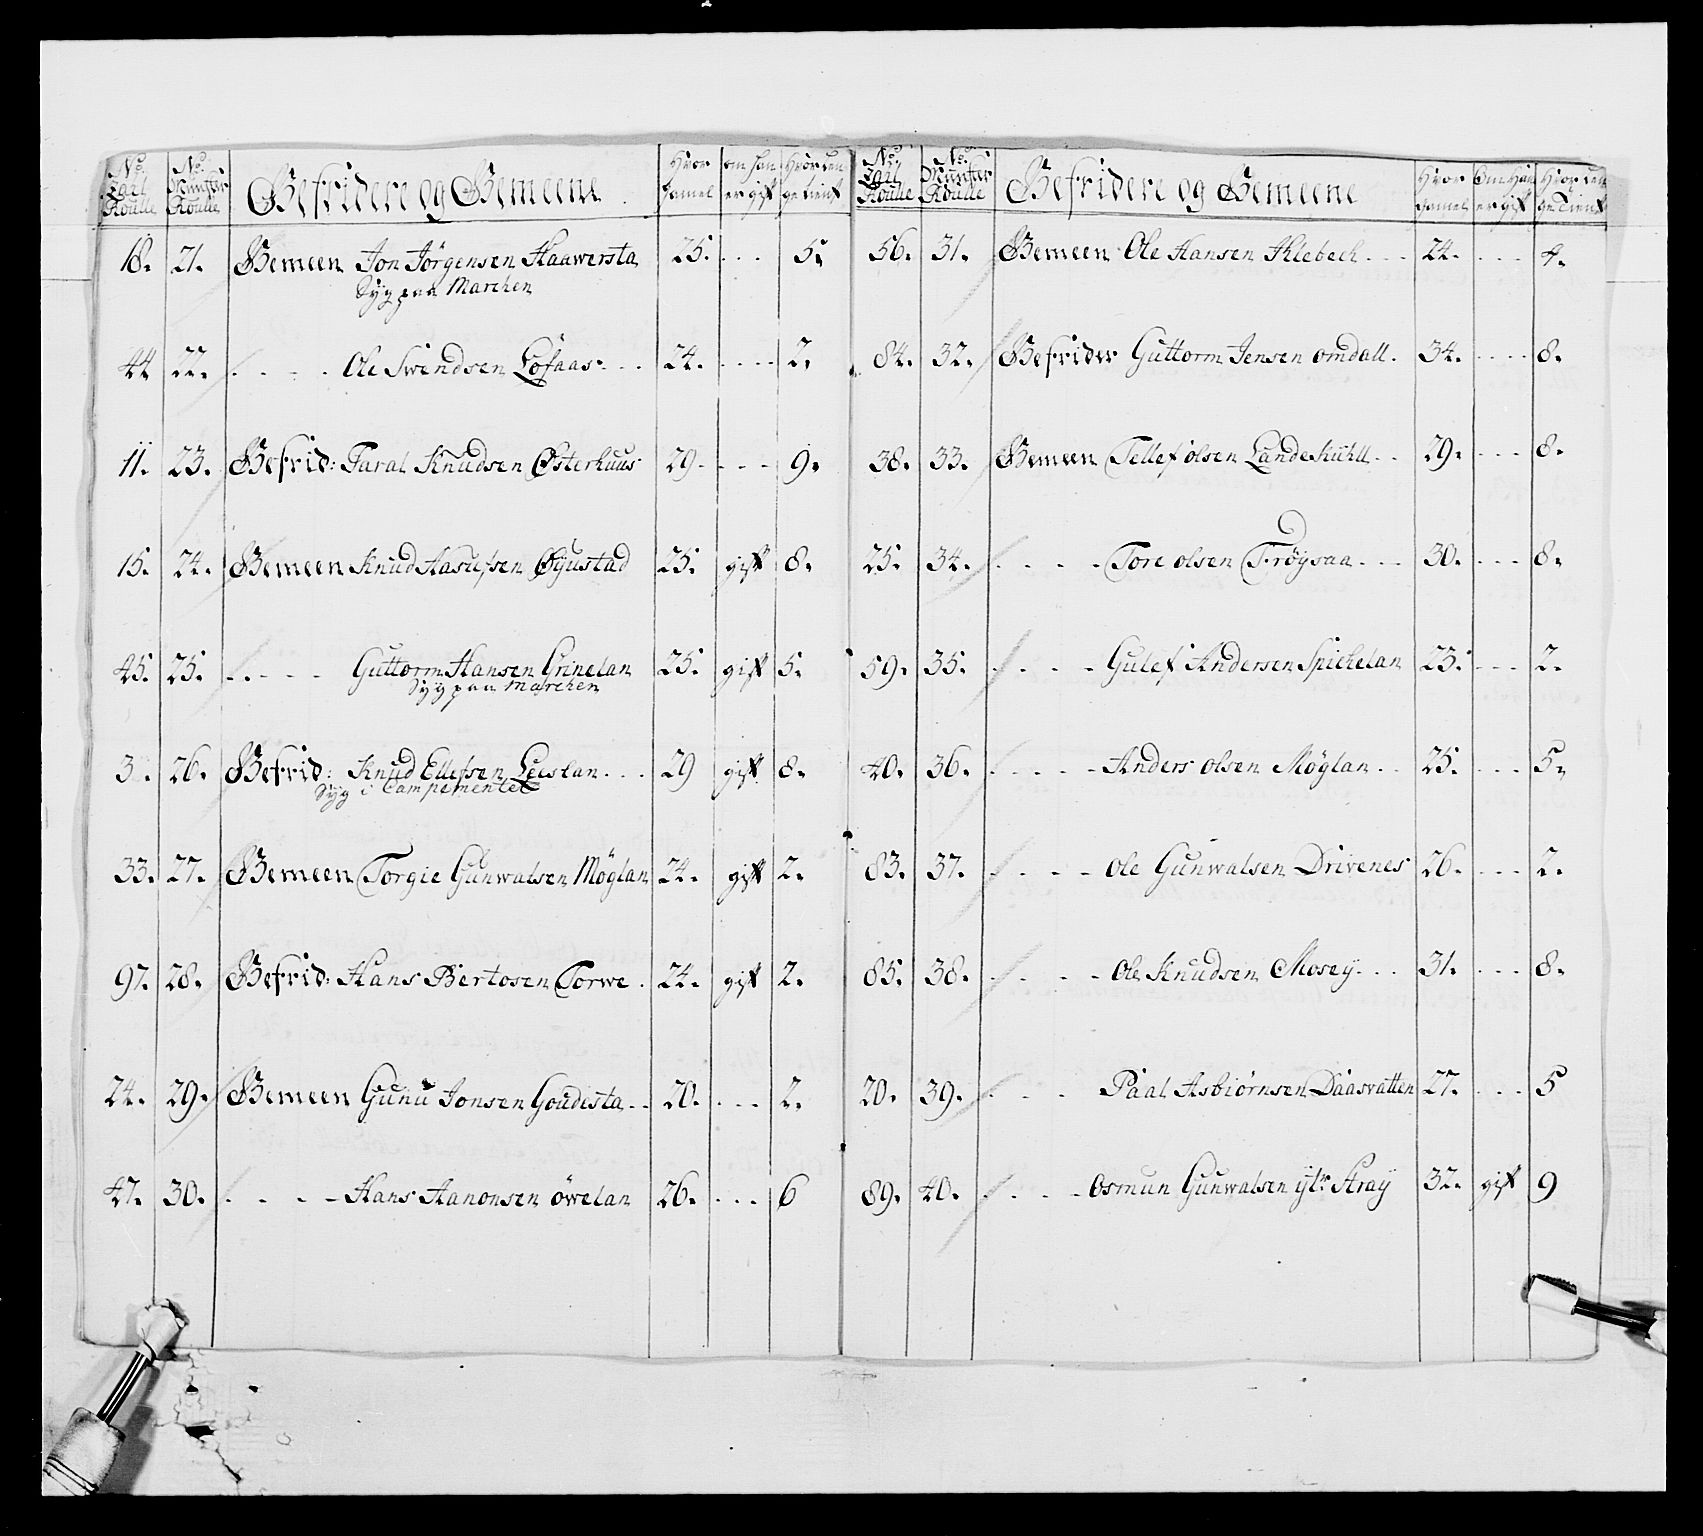 No. Lail Roulle | No. Munster Roulle | Befridere og Gemeene | Hvor gamel | om han er gift | Hvor len ge tient
18. 21. Gemeen Jon Jörgensen Haawersta 25. . . . 5.
Syg paa Marchen
44 22. . . . . Ole Swendsen Löfaas . . . 24. . . . . 2.
11. 23. Befrid: Taral Knudsen Østerhuus 29. . . . 9.
15. 24. Gemeen Knud Aasufsen Øyustad 25. gift 8.
45. 25. . . . . . Guttorm Hansen Grinelan 25. gift 5.
Syg paa marchen
3. 26. Befrid: Knud Ellefsen Leeslan . . . 29 gift 8.
Syg i Campementet
33. 27. Gemeen Torgie Gunwalsen Möglan 24. gift 2.
97. 28. Befrid: Hans Bertosen Torwe . 24. gift 2.
24. 29. Gemeen Gunu Jonsen Goudesta . . 20. . . . 2.
47. 30. . . . . Hans Aanonsen öwelan 26. . . . 6
No. Lail Roulle | No. Munster Roulle | Befridere og Gemeene | Hvor gamel | Om Han er gift | Hvor len ge Tient
56. 31. Gemeen Ole Hansen Klebech . . . 24. . . . 4.
84. 32. Befrider Guttorm Jensen omdall . 34. . . . . 8.
38. 33. Gemeen Tellef olsen Landekiihll . . 29. . . . 8.
25. 34. . . . . Tore olsen Frøysaa . . . 30. . . . 8.
59. 35. . . . . Gulef Andersen Spickelan 23. . . . 2.
40. 36. . . . . . Anders olsen Möglan . . 25. . . . 5.
83. 37. . . . . Ole Gunwalsen Drivenes 26. . . . 2.
85. 38. . . . . Ole Knudsen Mosey . . . 31. . . . 8.
20. 39. . . . Paal Asbiørnsen Daasvatten 27. . . . 5
89. 40. . . . . Osmun Gunwalsen ytr Aray 32. gift 9